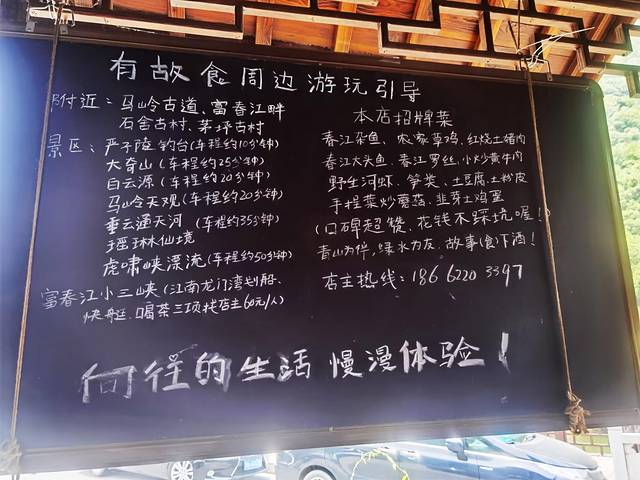 有故食周边游玩引导
附近：马岭古道、富春江畔
石舍古村、茅坪古村
景区：严子陵钓台(车程约10分钟)
大奇山(车程约25分钟)
白云源(车程约20分钟)
马岭天观(车程约20分钟)
垂云通天河(车程约35分钟)
瑶琳仙境
虎啸峡漂流(车程约50分钟)
富春江小三峡(江南龙门湾划船、
快艇、喝茶三项找店主60元/人)
本店招牌菜
春江杂鱼、农家草鸡、红烧土猪肉
春江大头鱼、春江罗丝、小炒黄牛肉
野生河虾、笋煲、土豆腐、土粉皮
手捏菜炒蘑菇、韭芽土鸡蛋
(口碑超赞、花钱不踩坑喔！
青山为伴，绿水为友、故事食下酒！
店主热线：186 6220 3397
向往的生活 慢漫体验！